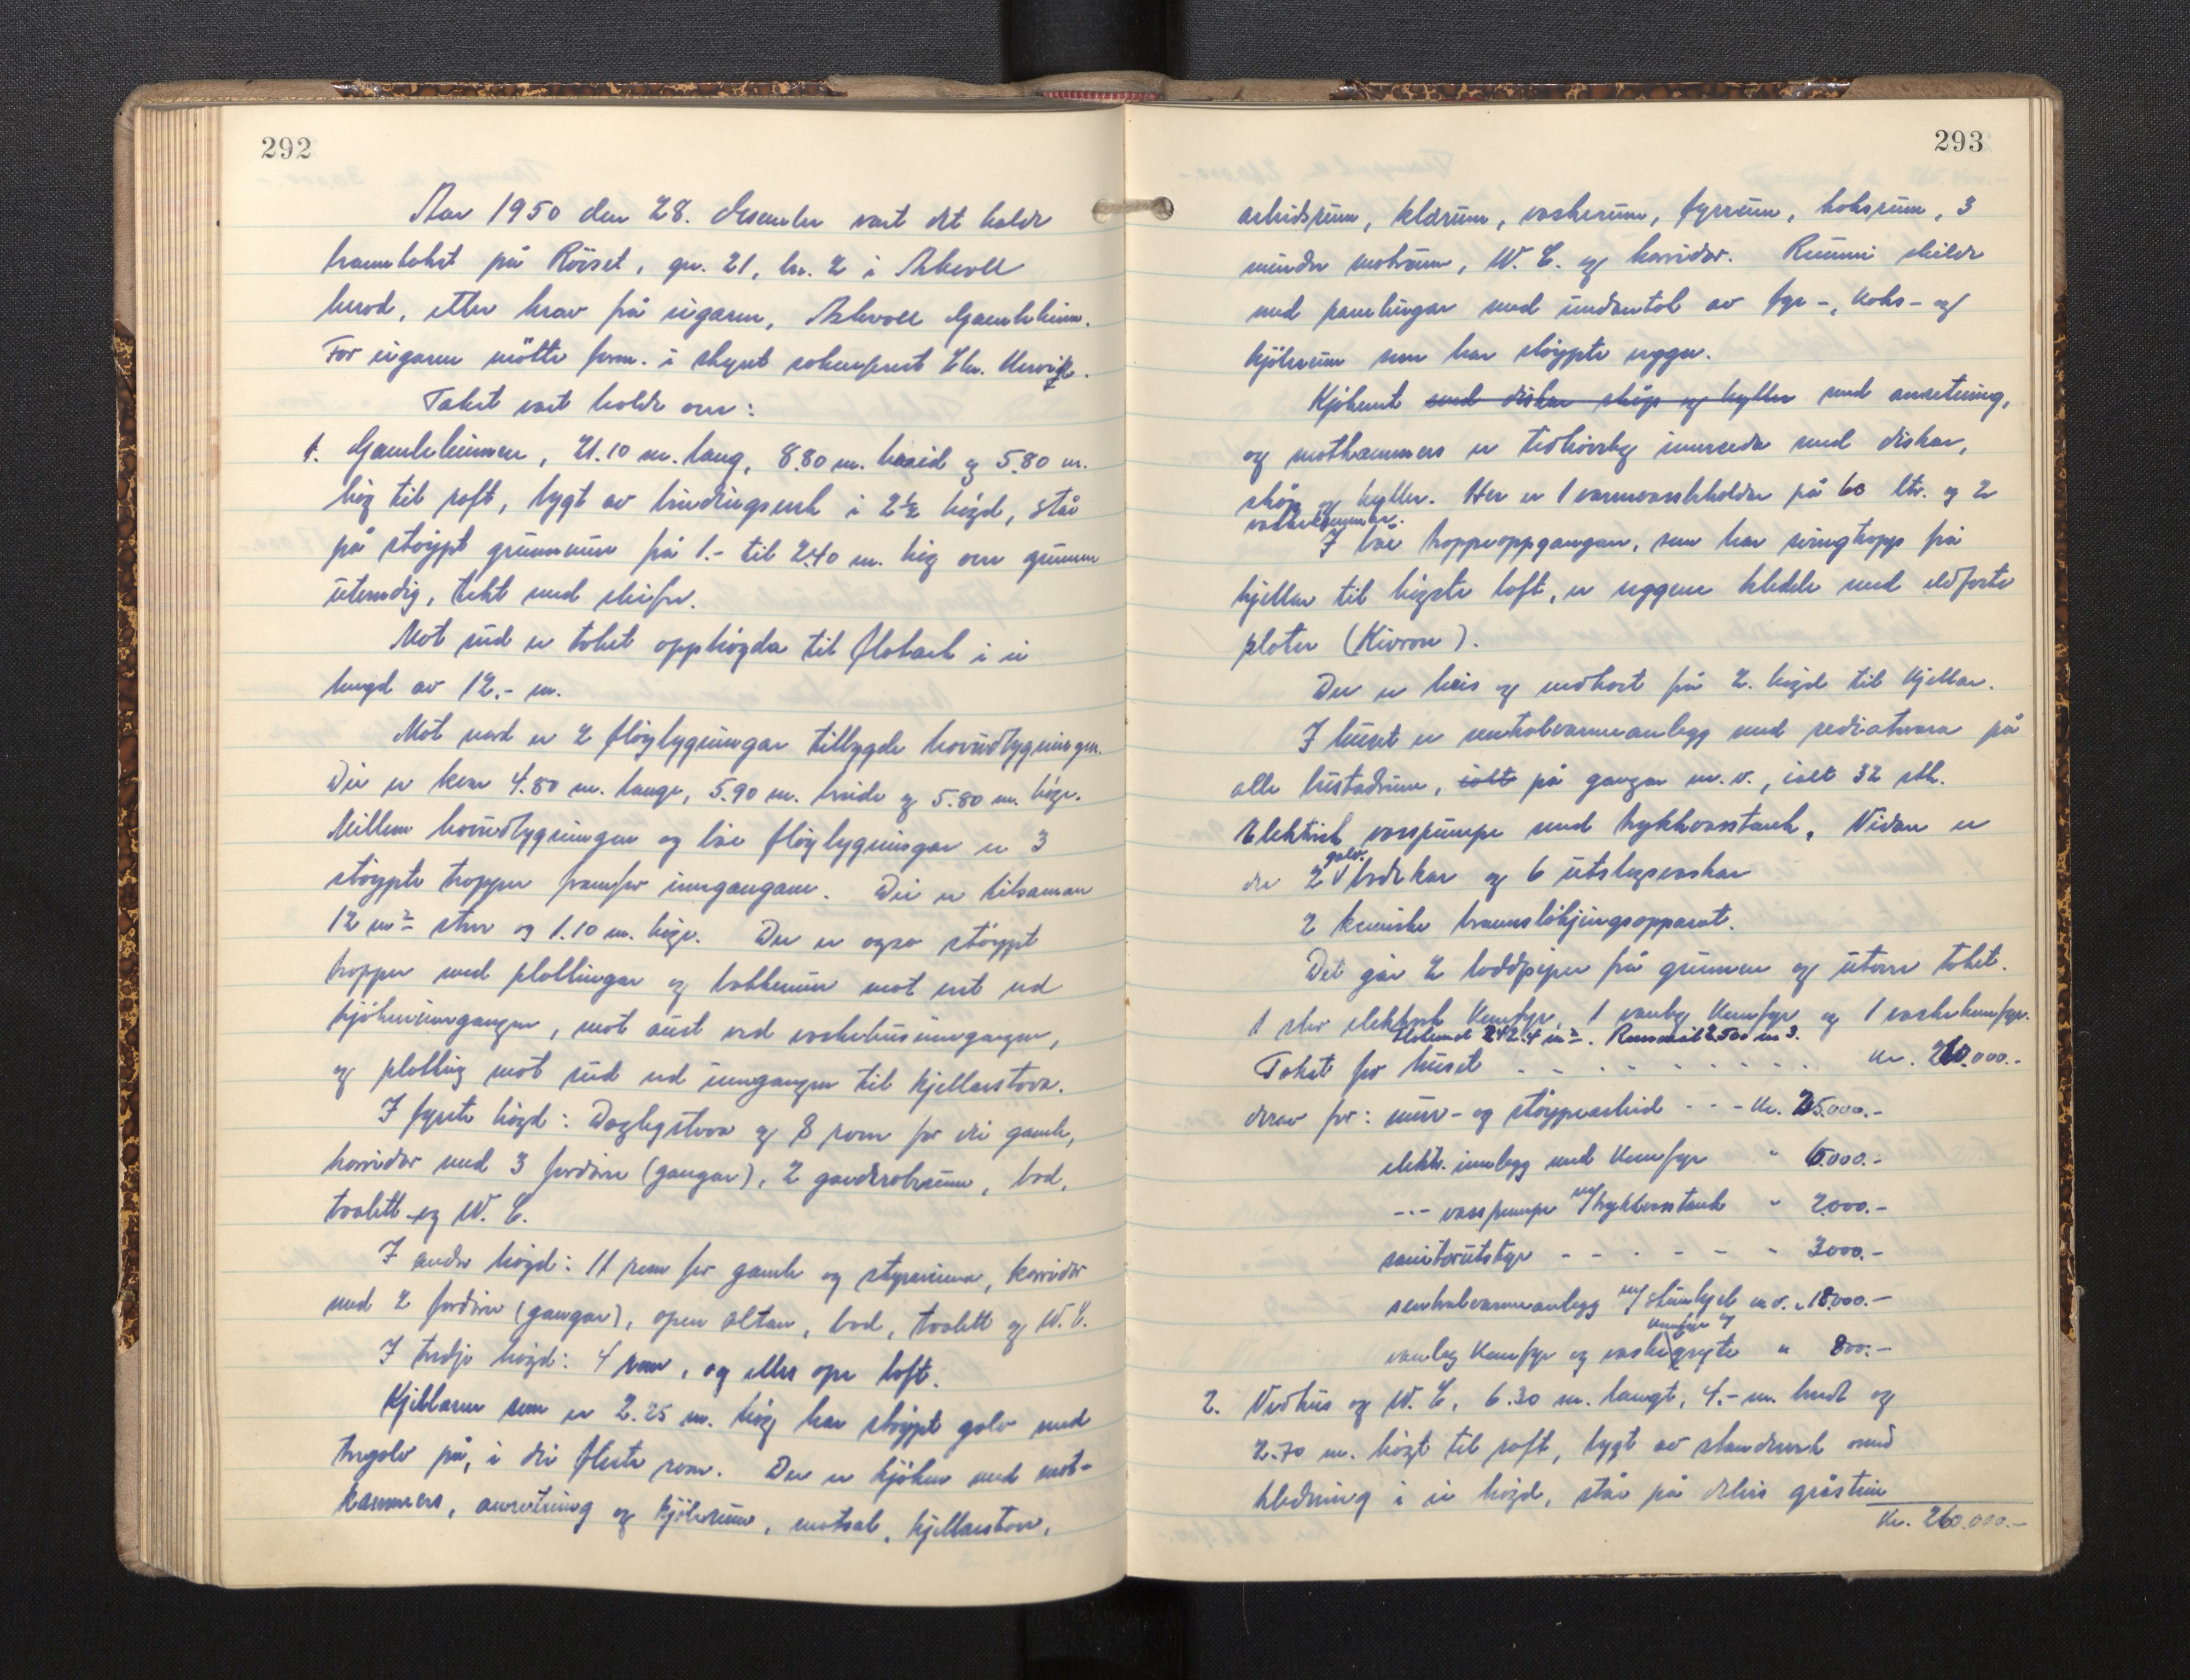 292
Aar 1950 den 28. desember vart det halde
branntakst på Röiset, gn. 21, bn. 2 i Askvoll
herad, etter krav frå eigaren, Askvoll Gamleheim.
For eigaren mötte form. i styret sokneprest Chr.
Takst vart halde over:
1. Gamleheimen, 21.10 m. lang, 8.80 m. breid og 5.80 m.
høg til raft, bygt av bindingsverk i 2½ høgd, står
på støypt grunnmur frå 1.- til 2.40 m. høg over grunnen
utvendig, tekt med skifer.
Mot sud er taket opphøgda til flatark i ei
lengd av 12.- m.
Mot nord er 2 fløybygningar tilbygde hovudbygningen.
Dei er kvar 4.80 m. lange, 5.90 m. breide og 5.80 m. høge.
Millom hovudbygningen og båe fløybygningar er 3
støypte tropper framfor inngangane. Dei er tilsaman
12 m² store og 1.10 m. høge. Der er ogso støypt
tropper med plattingar og bakkemur mot vest ved
kjøkeninngangen, mot aust ved vaskehusinngangen,
og platting mot sud ved inngangen til kjellarstova.
I fyrste høgd: Daglegstova og 8 rom for dei gamle,
korridor med 3 fordører (gangar), 2 garderoberum, bad,
toalett og W. C.
I andre høgd: 11 rom for gamle og styrarinna, korridor
med 2 fordører (gangar), open altan, bad, toalett og W. C.
I tredje høgd: 4 rom, og elles ope loft.
Kjellaren som er 2.25 m. høg har støypt golv med
tregolv på, i dei fleste rom. Der er kjøken med mat-
kammers, anretning og kjølerum, matsal, kjellarstova,
293
arbeidsrum, klærum, vaskerum, fyrrum, koksrum, 3
mindre matrum, W. C. og korridor. Rummi skilde
med panelingar med undantak av fyr-, koks- og
kjølerum som har støypte vegger.
Kjøkenet med diskar skåp og hyller med anretning,
og matkammers er tidhøveleg innreda med diskar,
skåp og hyller. Her er 1 varmvassbehaldar på 60 ltr. og 2
vaskekummar.
I båe troppeoppgangar, som har svingtropp frå
kjellar til høgste loft, er veggene kledde med eldfaste
plater
Der er heis og nedkast frå 2. høgd til kjellar.
I huset er sentralvarmeanlegg med radiatorar på
alle bustadrum, ialt på gangar m. v., ialt 32 stk.
Elektrisk vasspumpe med trykkvasstank. Vidare er
der 2 galv. badekar og 6 utslagsvaskar
2 kemiske brannsløkjingsapparat.
Det går 2 loddpiper frå grunnen og utover taket.
1 stor elektrisk komfyr, 1 vanleg komfyr og 1 vaskekomfyr.
Flatemål 242.4 m². Rummål 2500 m³.
Takst for huset - - - - - - - - - kr. 260.000.-
derav for: mur- og støypearbeid - - - kr. 25.000.-
elektr. innlegg med komfyr " 6.000.-
--- vasspumpe m/trykkvasstank " 2.000.-
sanitærutstyr - - - - - - " 3000.-
sentralvarmeanlegg m/støutkjel m.v. " 18.000.-
vanleg komfyr og vaske komfyr og gryte " 800.-
2. Vedhus og W. C, 6.30 m. langt, 4.- m. bredt og
2.70 m. høgt til raft, bygt av standverk med
kledning i ei høgd, står på delvis gråstein
Kr. 260.000.-